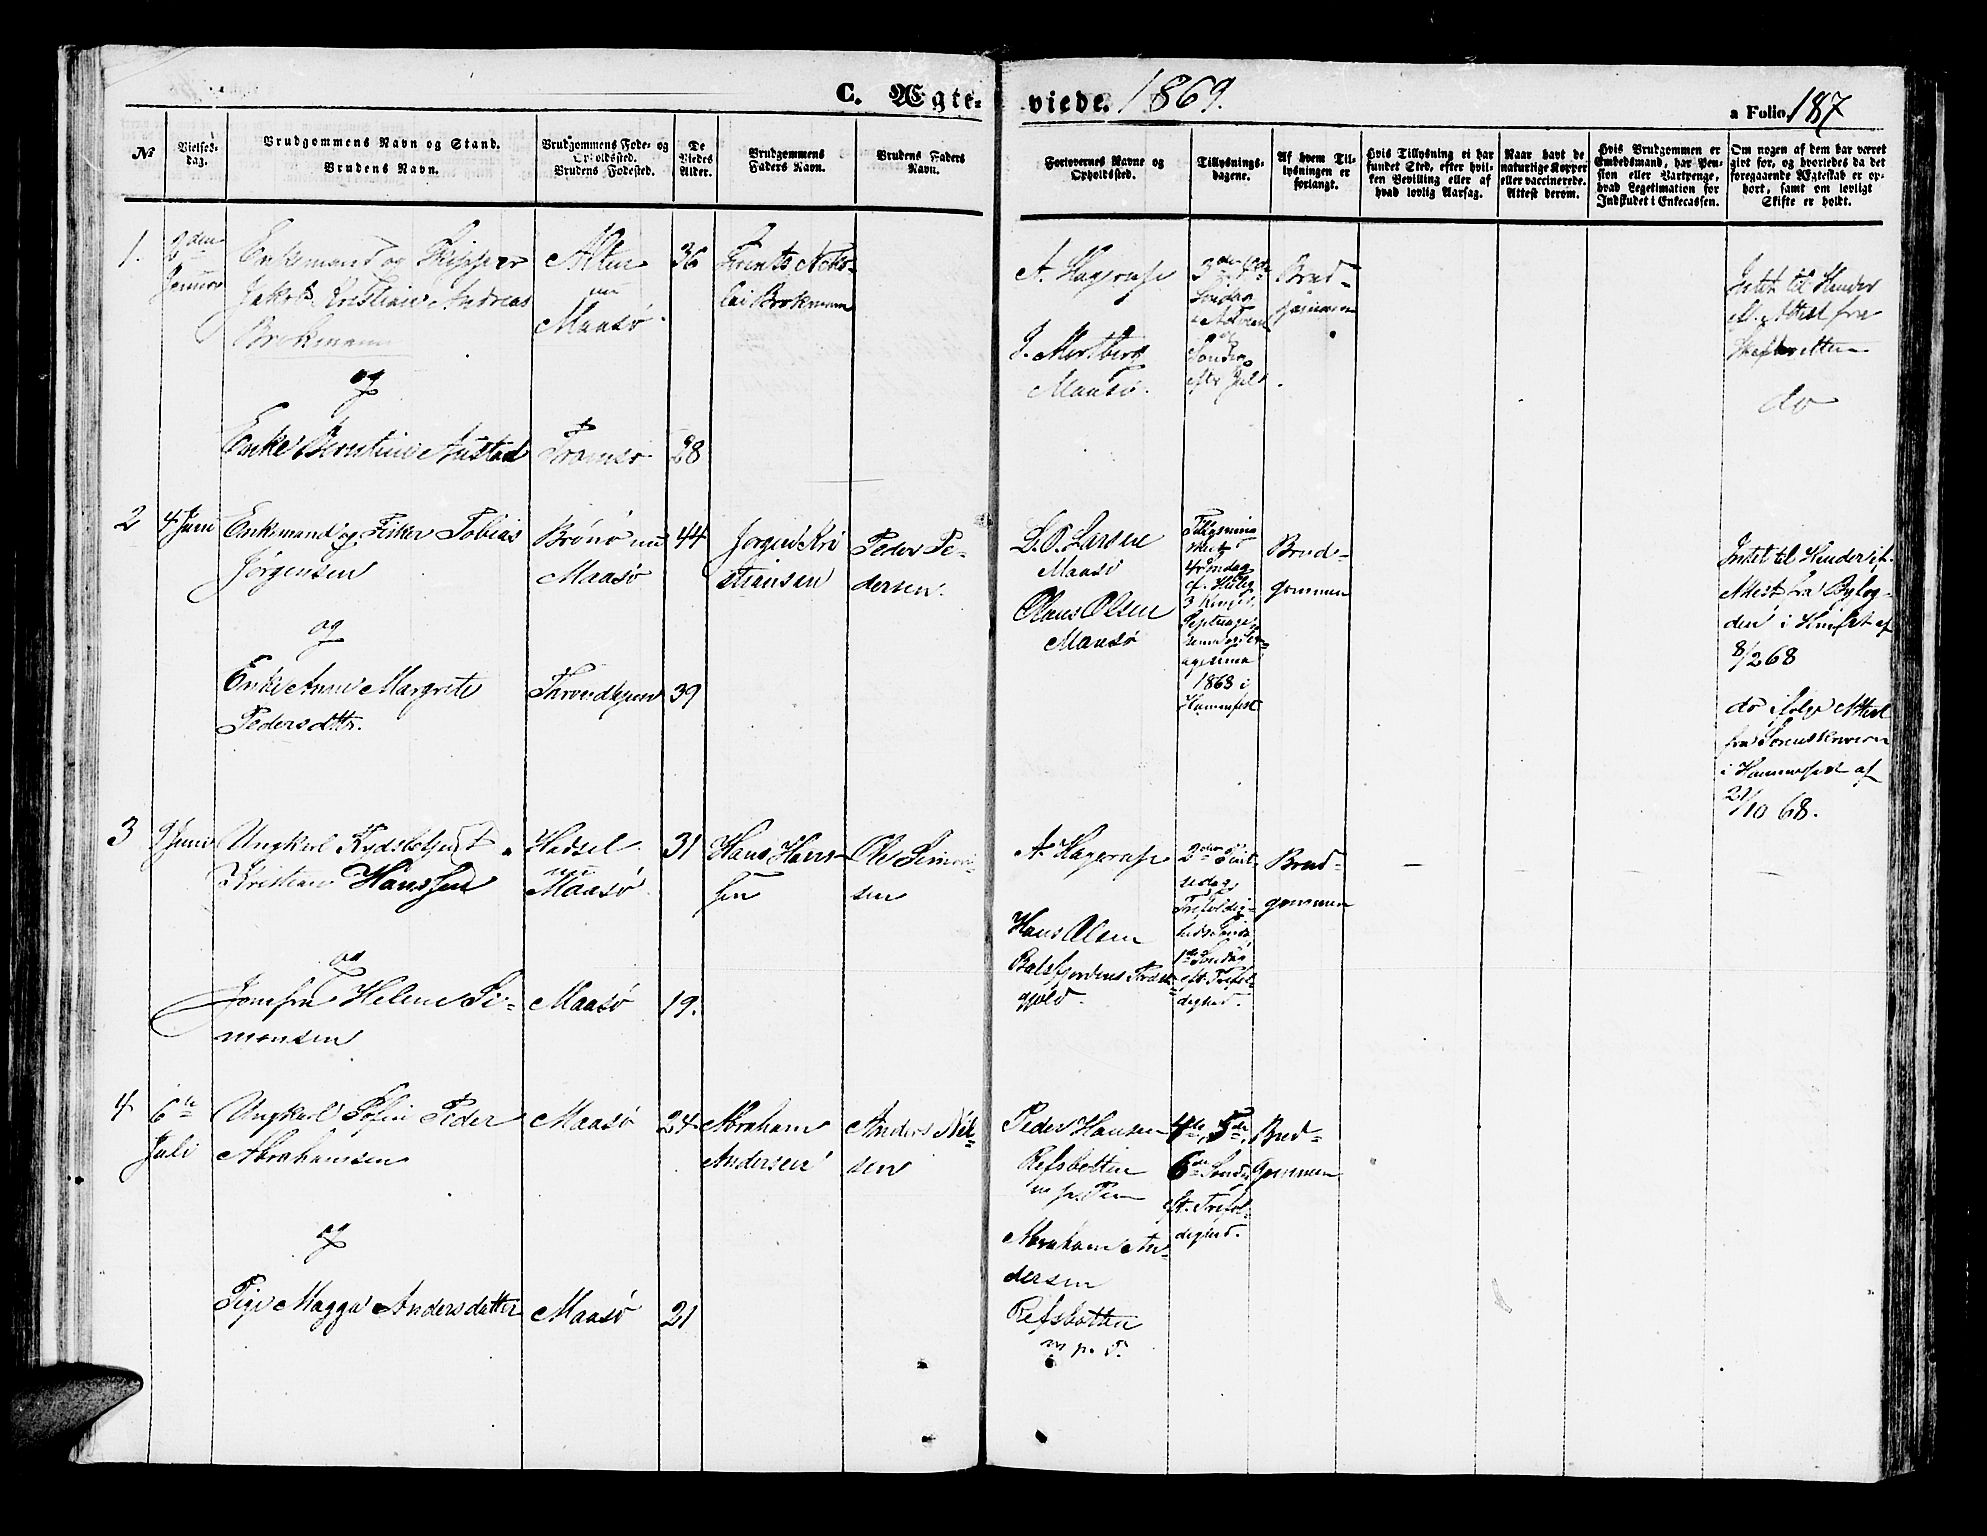 C. Ægte-
viede. 1869.
a Folio 187
№
Vielses-
dag.
Brudgommens Navn og Stand.
Brudens Navn.
Brudgommens Føde- og
Opholdssted.
Brudens Fødested.
De
Viedes
Alder.
Brudgommens
Faders Navn.
Brudens Faders
Navn.
Forlovernes Navne og
Opholdssted.
Tillysnings-
dagene.
Af hvem Til-
lysningen er
forlangt.
Hvis Tillysning ei har
fundet Sted, efter hvil-
ken Bevilling eller af
hvad lovlig Aarsag.
Naar havt de
naturlige Kopper
eller vaccinerede.
Attest derom.
Hvis Brudgommen er
Embedsmand, har Pen-
sion eller Vartpenge,
hvad Legitimation for
Indskudet i Enkecassen.
Om nogen af dem har været
givt før, og hvorledes da det
foregaaende Ægteskab er op-
hørt, samt om lovligt
Skifte er holdt.
1.
2den
Januar
Enkemand og Skipper
Jakob Kristian Andreas
Brokmann
og
Enke Berntine Austad
Alten
nu
Maasø
Tromsø
36
28
Brokmann
A. Hagerup
Maasø.
Søndag
og
Søndag
efter Jul
Brud-
gommen
Intet til Hinder
Attest fra
Skifteretten
do
2
4 Juni
Enkemand og Fisker Tobias
Jørgensen
og
Enke Anne Margrete
Pedersdttr.
Brønø nu
Maasø
Throndhjem
44
39
Jørgen Kri
stiansen
Peder Pe-
dersen
L. O. Larsen
Maasø
Olaus Olsen
Maasø
4 Søndag
3 Konger,
Septuage-
sima og Sex-
agesima
1868 i
Hammerfest
Brud-
gommen
Intet til Hinder
Attest fra Byfog-
den i
8/2 68
do ifølge Attest
fra Sorenskriveren
i Hammerfest af
21/10 68.
3
9 Juni
Ungkarl
Kristian Hanssen
og
Jomfru Helene Si-
monsen
Hadsel
nu
Maasø
Maasø
31
19.
Hans Hans-
sen
Ole Simon-
sen
A. Hagerup
Hans Olsen
Balsfjordens Præste-
gjeld.
2den Pint-
sedag,
Trefoldig-
heds Sønd.
1ste Søndag
eft. Trefol-
dighed.
Brud-
gommen
4
6te
Juli
Ungkarl Peder
Abrahamsen
og
Pige Magga Andersdatter
Maasø
Maasø
24
21
Abraham
Andersen
Anders Nil-
sen
Peder Hansen
Refsbotten
m. p. Pen
Abraham An-
dersen
Refsbotten
m. p. P.
4de, 5te,
6te Søndag
eft. Trefol-
dighed.
Brud-
gommen